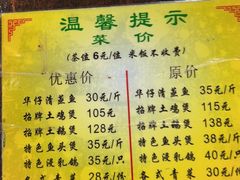 温馨提示
菜价
(茶位6元/位 米饭不收费)
优惠价 原价
华仔清蒸鱼 30元/斤 华仔清蒸鱼 35元/斤
招牌土鸡煲 105元 招牌土鸡煲 115元
招牌土鹅煲 128元 招牌土鹅煲 138元
特色鱼头煲 35元 特色鱼头煲 40元
特色浸乳鸽 35元/只 特色浸乳鸽 40元/只
各式青菜 28元 各式青菜 30元